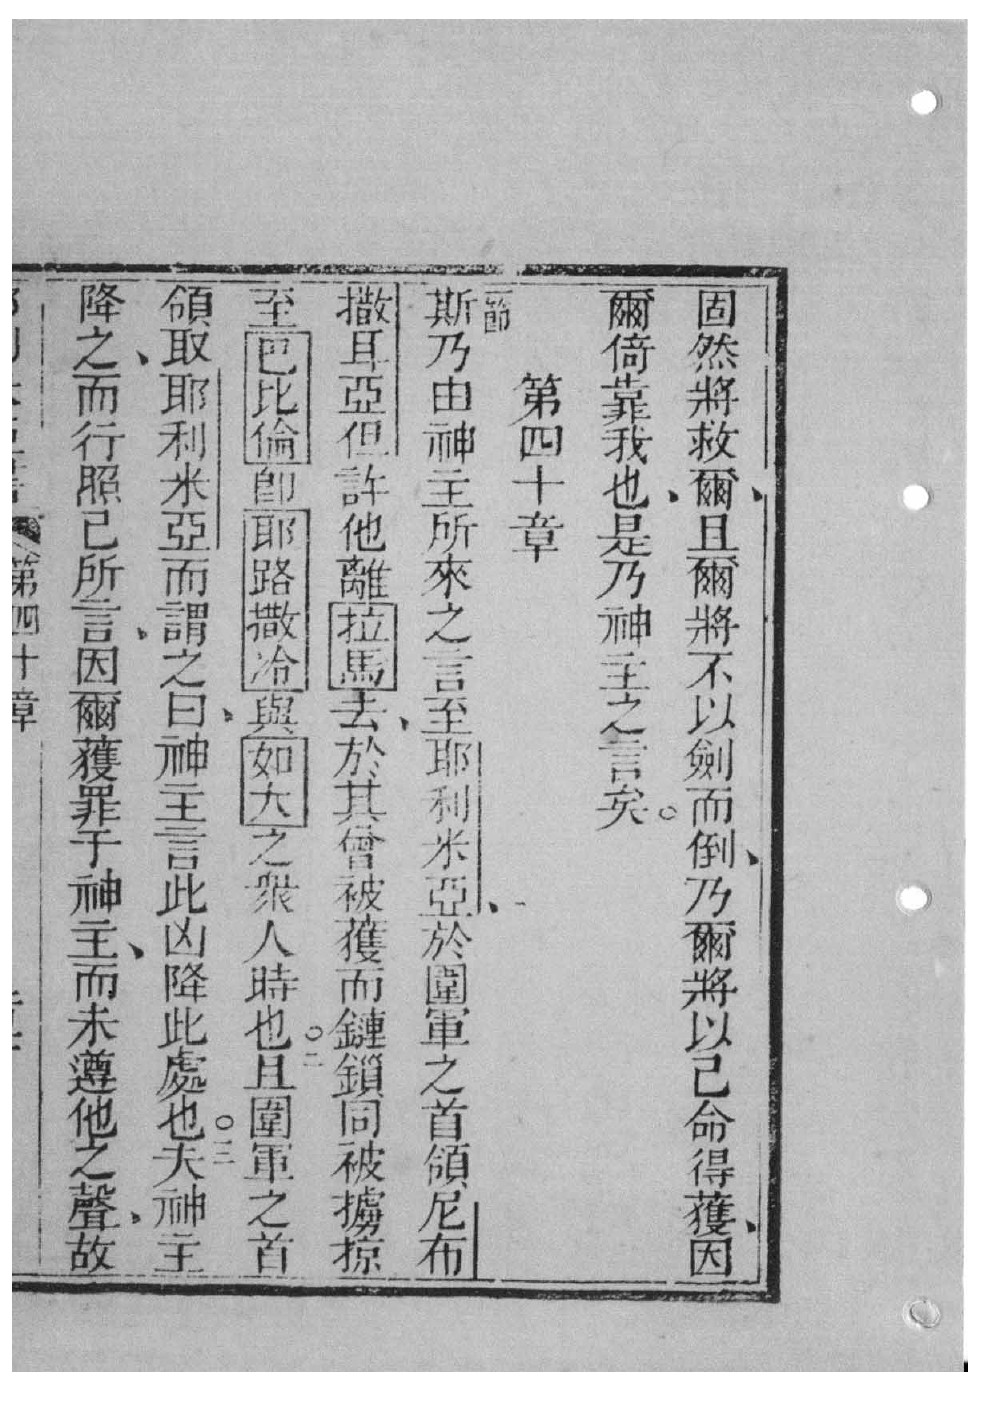 固然將救爾、且爾將不以劍而倒、乃爾將以己命得獲、因
爾倚靠我也、是乃神主之言矣。
第四十章
一節斯乃由神主所來之言至耶利米亞、於圍軍之首領尼布
撒耳亞但許他離拉馬去、於其曾被獲而鏈鎖同被擄掠
至巴比倫卽耶路撒冷與如大之衆人時也。二且圍軍之首
領取耶利米亞而謂之曰、神主言此凶降此處也。三夫神主
降之、而行照己所言、因爾獲罪于神主、而未遵他之聲、故
第四十章